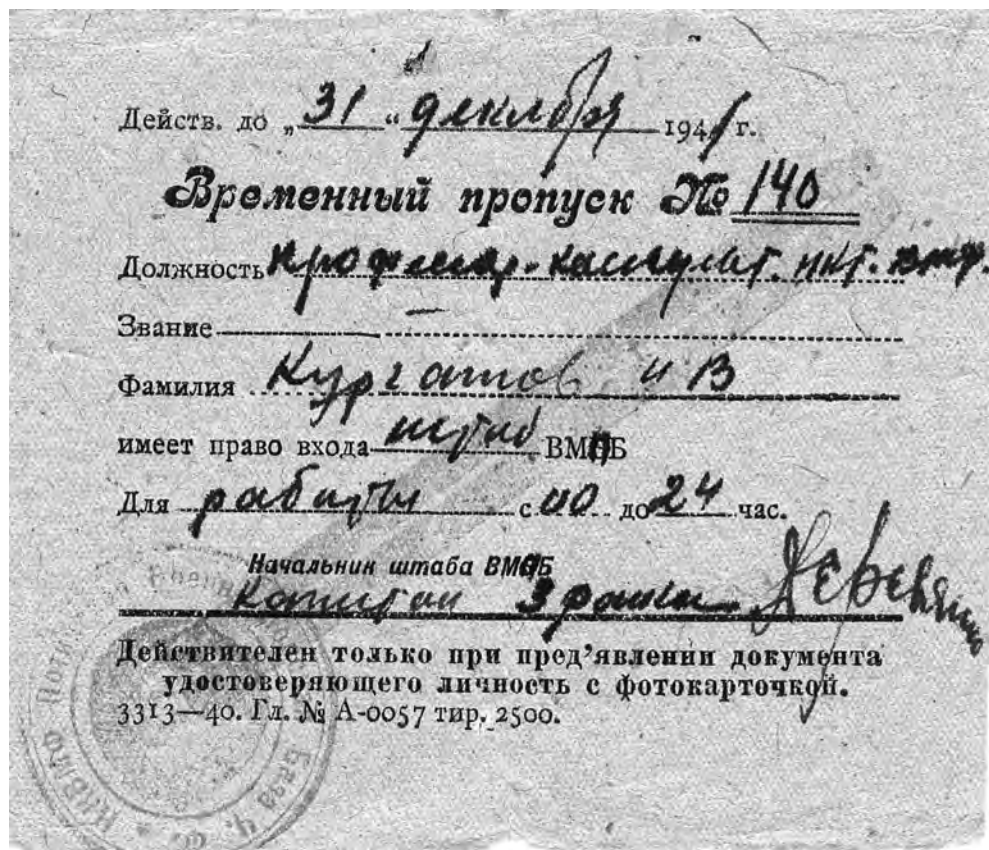 Действ. до „31“ декабря 1941 г.
Временный пропуск № 140
Должность профессор-консульт. НКТ. ВМФ.
Звание —
Фамилия Курчатов И В
имеет право входа штаб ВМБ
Для работы с 00 до 24 час.
Начальник штаба ВМБ
Капитан 3 ранга
Действителен только при пред’явлении документа
удостоверяющего личность с фотокарточкой.
3313—40. Гл. № А-0057 тир. 2500.
НКВМФ
База Ч. Ф.